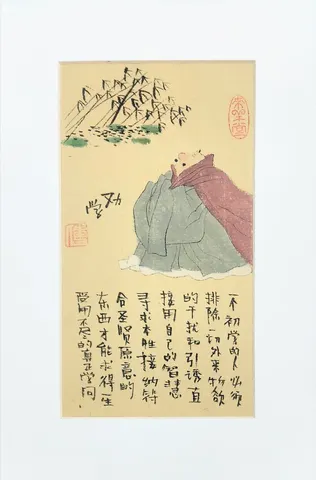 劝学
一个初学的人必须
排除一切外来物欲
的干扰和引诱直
接用自己的智慧
寻求本胜接纳符
合圣贤原意的
东西才能求得一生
受用不尽的真正学问